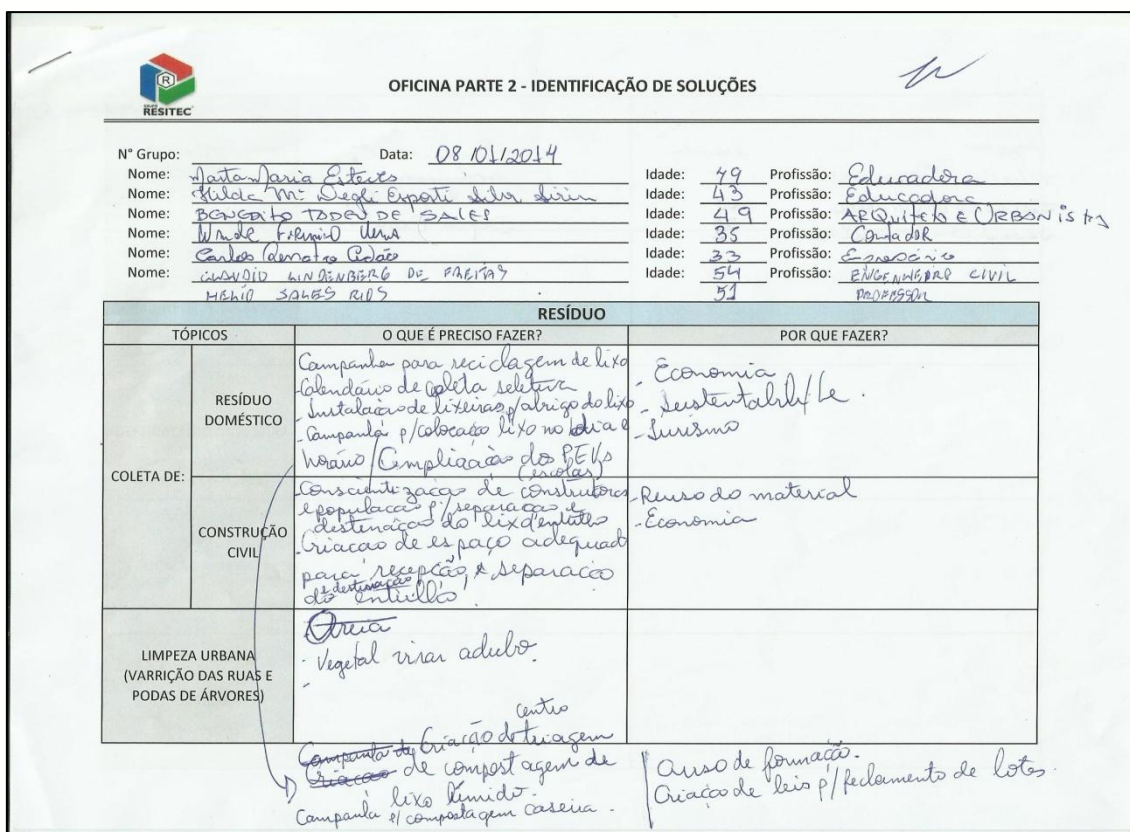 GRUPO
RESITEC
OFICINA PARTE 2 - IDENTIFICAÇÃO DE SOLUÇÕES
N° Grupo: Data: 08/01/2014
Nome: Marta Maria Esteves Idade: 49 Profissão: Educadora
Nome: Hilda Mª Degli Esporti Silva Idade: 43 Profissão: Educadora
Nome: BENEDITO TADEU DE SALES Idade: 49 Profissão: ARQUITETO E URBANISTA
Nome: Idade: 35 Profissão: Contador
Nome: Carlos Idade: 33 Profissão:
Nome: CLAUDIO LINDENBERG DE FREITAS Idade: 54 Profissão: ENGENHEIRO CIVIL
HELIO SALES RIOS 51 PROFESSOR
RESÍDUO
TÓPICOS O QUE É PRECISO FAZER? POR QUE FAZER?
COLETA DE:
RESÍDUO
DOMÉSTICO
Campanha para reciclagem de lixo
-Calendário de coleta seletiva
-Instalação de lixeiras p/abrigo do lixo
-Campanha p/colocação lixo no dia e
horário/Ampliação dos PEVs
(escolas)
- Economia
- Sustentabilid/de.
- Turismo
CONSTRUÇÃO
CIVIL
-Conscientização de construtores
e população p/separação e
destinação do lixo/entulho
-Criação de espaço adequado
para recepção, e separação
e destinação
do entulho.
-Reuso do material
-Economia
LIMPEZA URBANA
(VARRIÇÃO DAS RUAS E
PODAS DE ÁRVORES)
Areia
- Vegetal virar adubo.
-
centro
Campanha de Criação de triagem
Criação de compostagem de
lixo úmido.
Campanha p/ compostagem caseira.
Curso de formação.
Criação de leis p/fechamento de lotes.